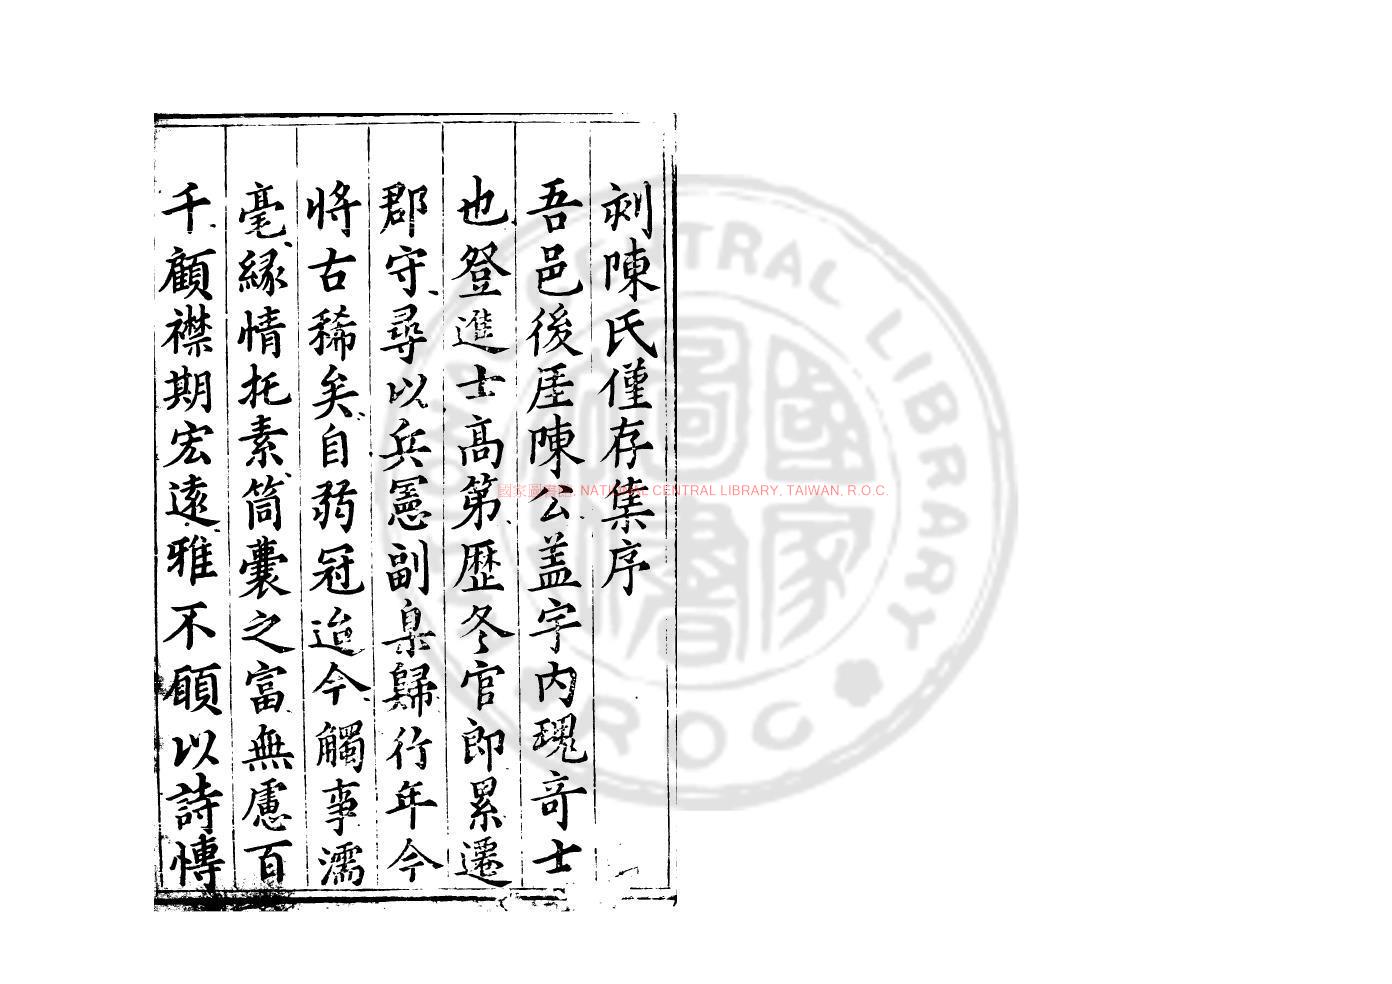 刻陳氏僅存集序
吾邑後厓陳公盖宇内瑰竒士
也登進士髙第歷冬官郎累遷
郡守尋以兵憲副臬歸行年今
將古稀矣自弱冠迨今觸事濡
毫緣情托素筒囊之富無慮百
千顧襟期宏遠雅不願以詩愽
國家圖書館, NATIONAL CENTRAL LIBRARY, TAIWAN, R.O.C.
CENTRAL LIBRARY
R O C